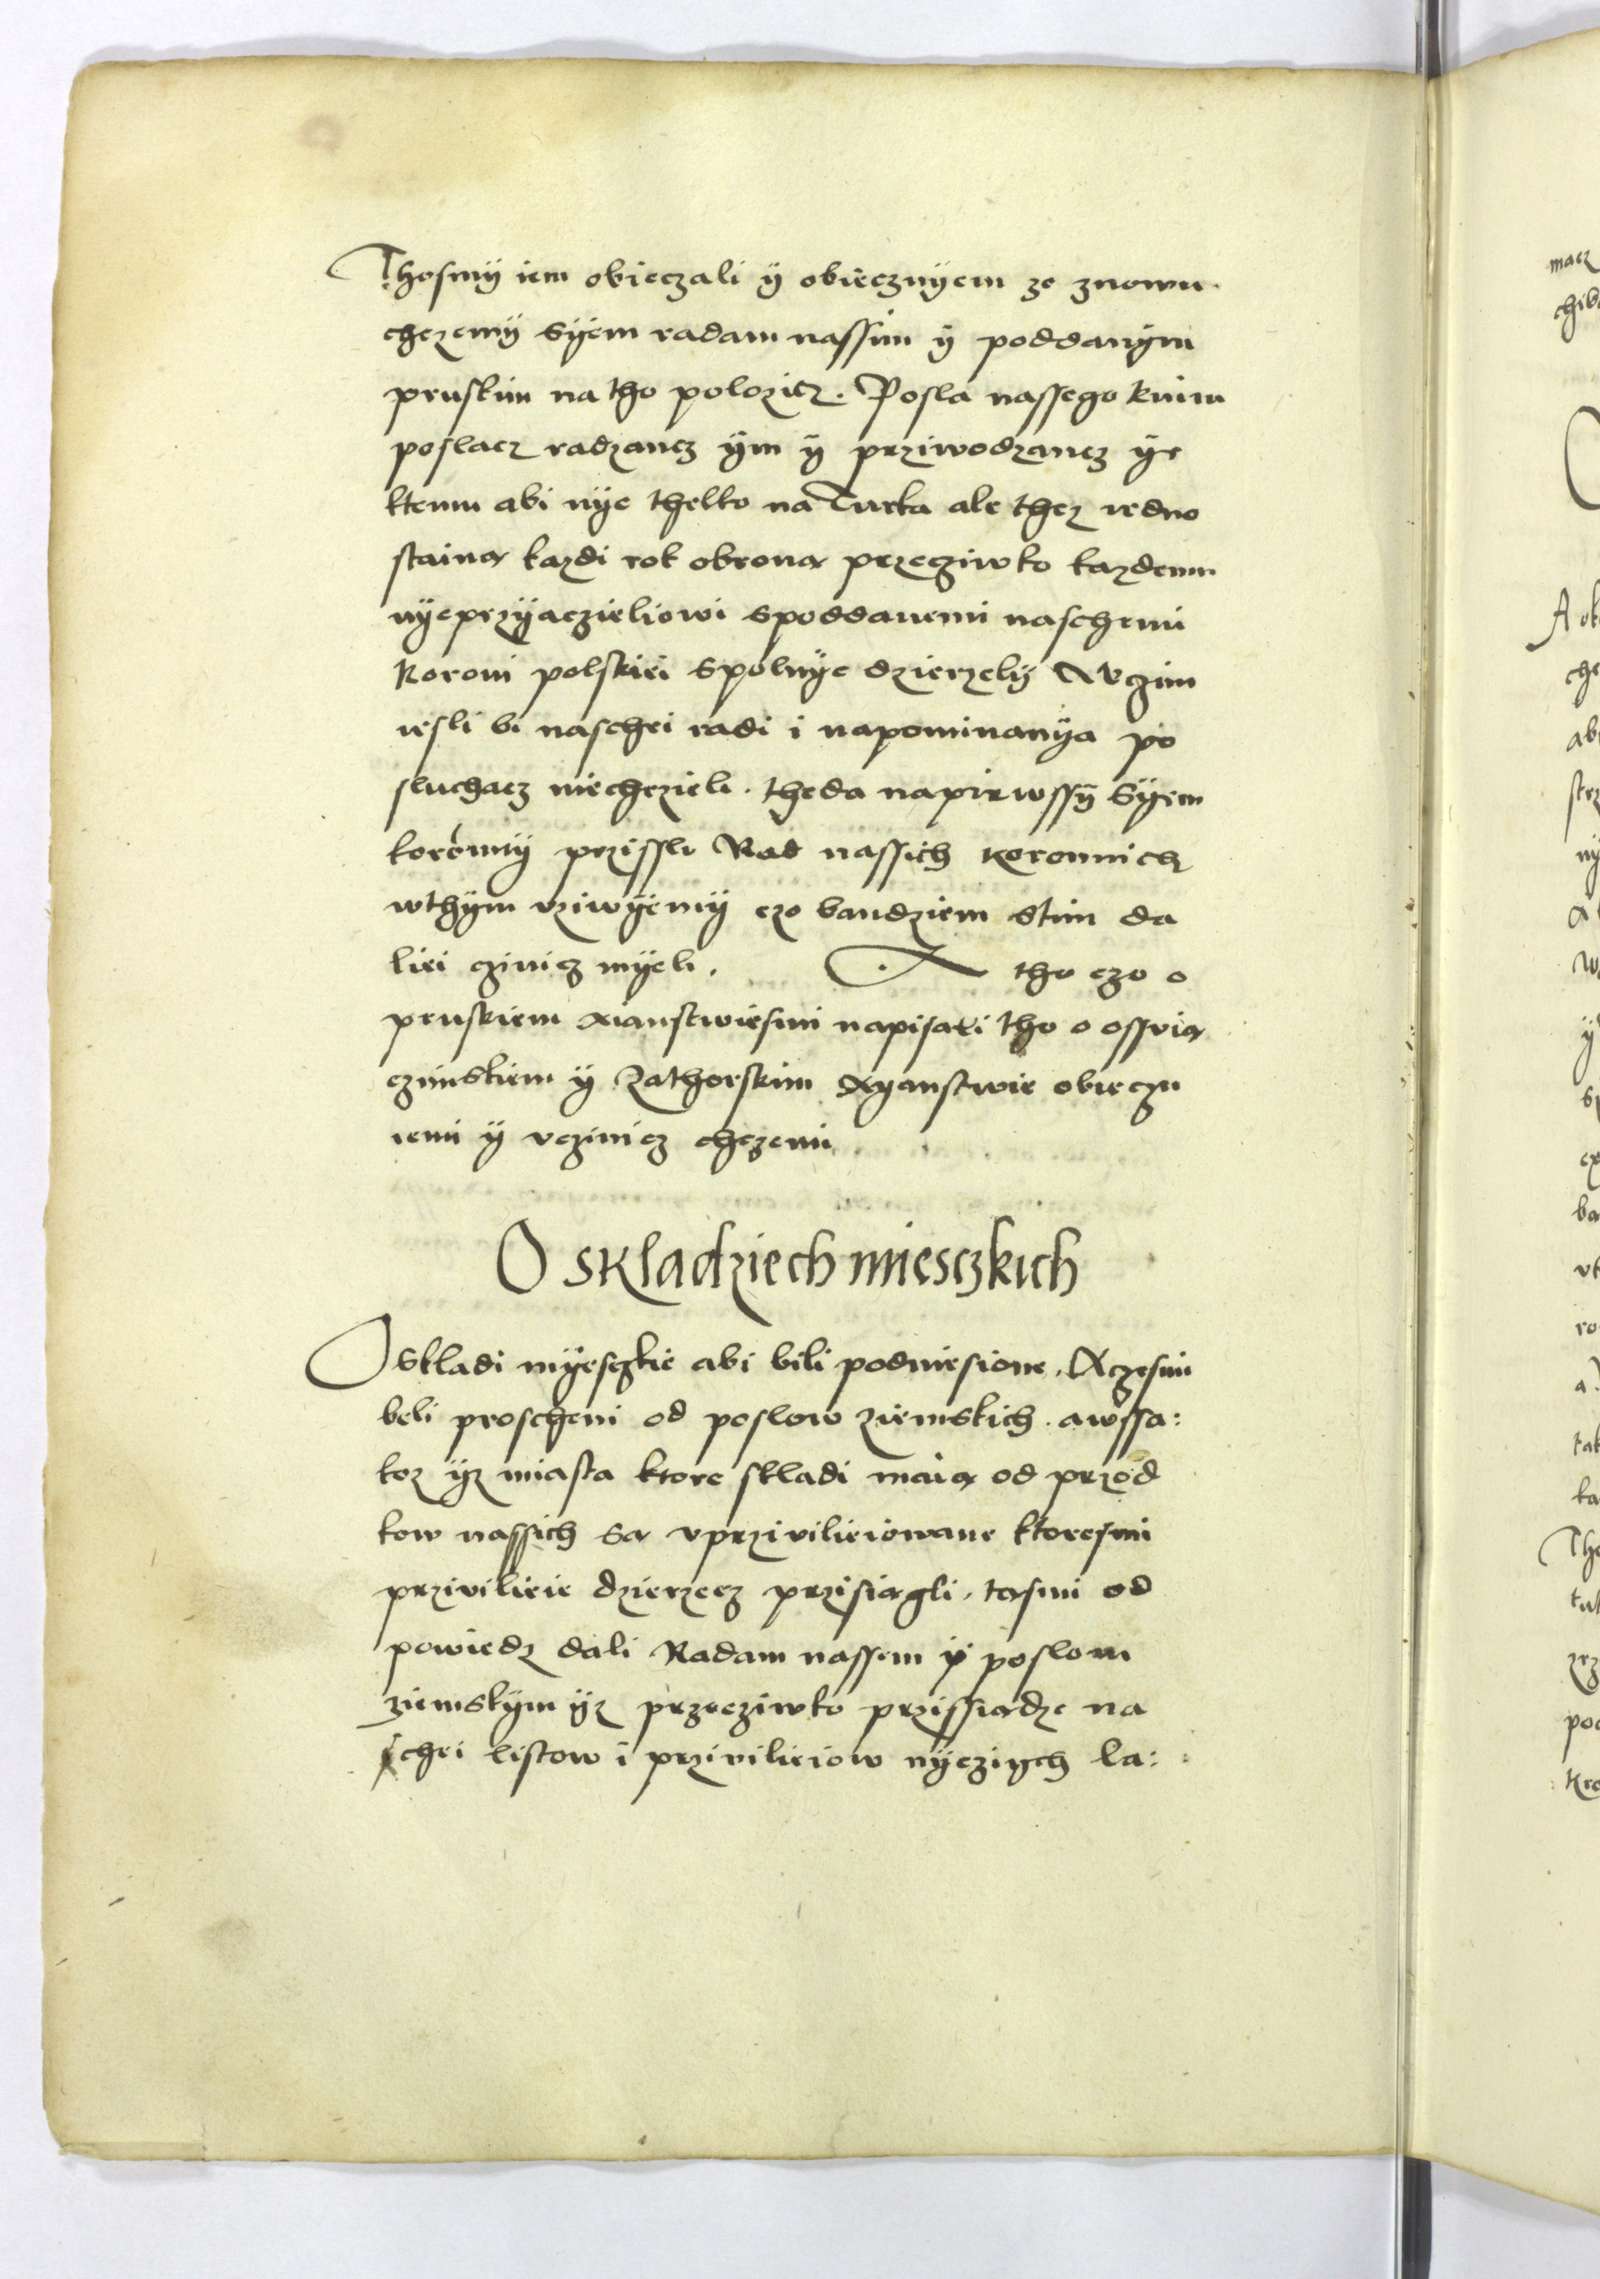 Thosmÿ iem obieczali ÿ obiecznÿem ze znowu
chczemÿ Sÿem radam nassim ÿ poddanÿm
pruskim na tho polozicz. Posla nassego knim
poslacz radzancz ÿm ÿ prziwodzancz ÿe
ktemu abi nÿe thelko na Turka ale thez iedno
staina kazdi rok obrona przecziwko kazdemu
nÿeprzÿaczieliowi spoddanemi naschemi
Koroni polskiei spolnÿe dzierzelÿ A wczim
iesli bi naschei radi i napominanÿa po
sluchacz niechczieli. theda napirwssÿ Sÿem
koronnÿ przissli Rad nassich Koronnich
wthÿm vziwÿemÿ czo bandziem stim da
liei czinicz mÿeli. A tho czo o
pruskiem xianstwiesmi napisali tho o osswia
czimskiem ÿ Zathorskim Xÿanstwie obieczu
iemi ÿ vczinicz chczemi
O skladziech miesczkich
O skladi mÿesczkie abi bili podniesione. Aczesmi
beli proscheni od poslow ziemskich. awssa:
koz ÿz miasta ktore skladi maia od przod
kow nassich sa vprzivilieiowane ktoresmi
przivilieie dzierzecz przisiagli. tasmi od
powiedz dali Radam nassem ÿ poslom
ziemskÿm ÿz przecziwko przissiadze na
schei listow i przivilieiow nÿczÿch la: